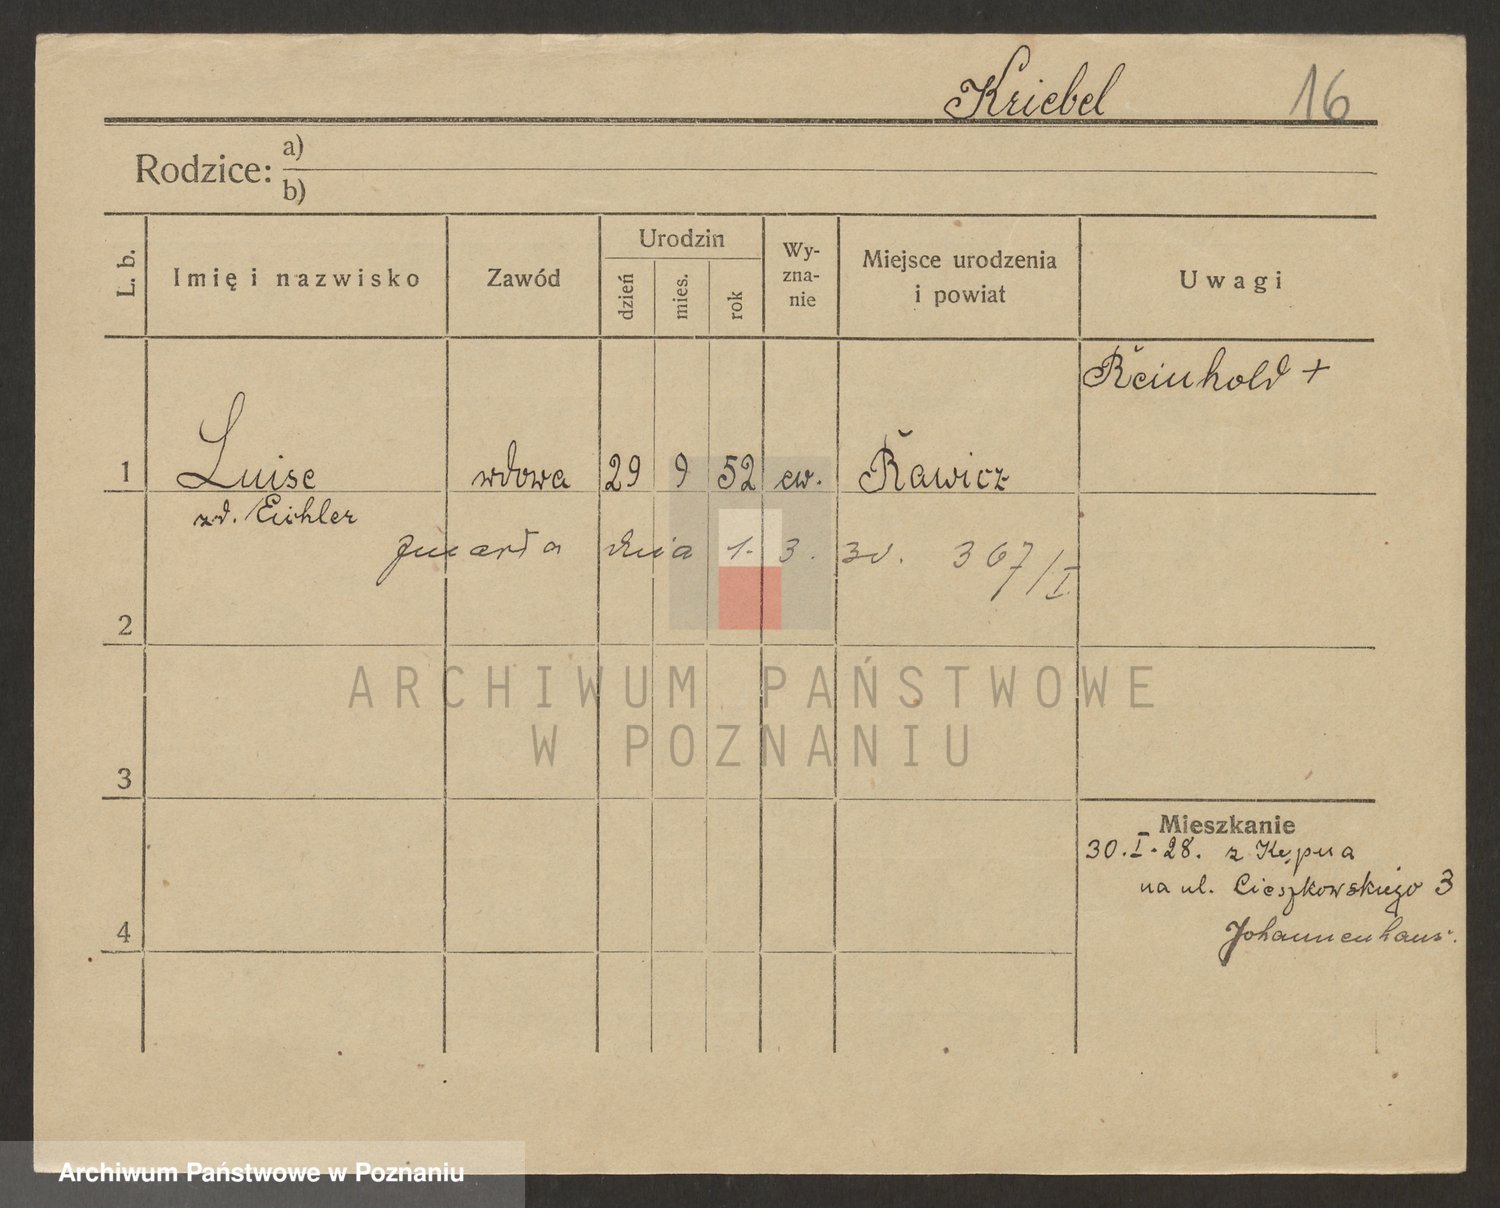 Kriebel 16
Rodzice: a)
b)
L. b.
Imię i nazwisko
Zawód
Urodzin
dzień
mies.
rok
Wy-
zna-
nie
Miejsce urodzenia
i powiat
Uwagi
Reinhold +
1 Luise wdowa 29 9 52 ew. Rawicz
zd. Eichler
zmarła dnia 1. 3. 30. 367/I
2
ARCHIWUM PAŃSTWOWE
W POZNANIU
3
Mieszkanie
30.I.28. z Kępna
na ul. Cieszkowskiego 3
Johannenhaus.
4
Archiwum Państwowe w Poznaniu